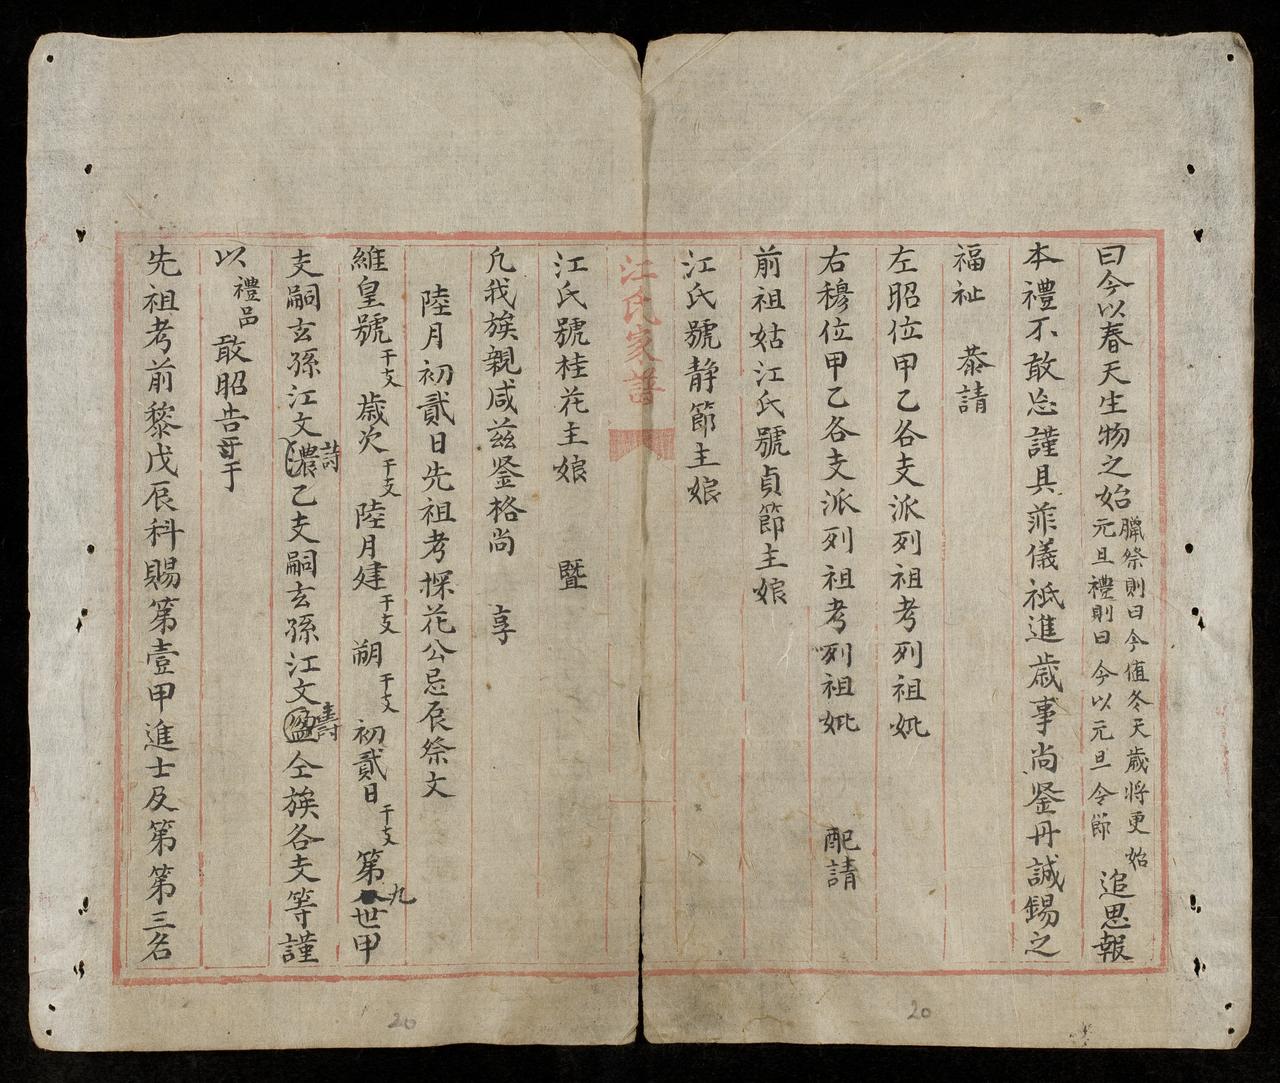 曰今以春天生物之始臘祭則曰今值冬天歲將更始元旦禮則曰今以元旦令節追思報
本禮不敢忘謹具菲儀祇進歲事尚鉴丹誠錫之
福祉 恭請
左昭位甲乙各支派列祖考列祖妣
右穆位甲乙各支派列祖考列祖妣 配請
前祖姑江氏號貞節主娘
江氏號静節主娘
江氏家譜
江氏號桂花主娘 暨
凡我族親咸兹鉴格尚 享
陸月初貳日先祖考探花公忌辰祭文
維皇號干支歲次干支陸月建干支朔干支初貳日干支第九世甲
支嗣玄孫江文濃詩乙支嗣玄孫江文盈壽仝族各支等謹
以禮品敢昭告于
先祖考前黎戊辰科賜第壹甲進士及第第三名
20
20